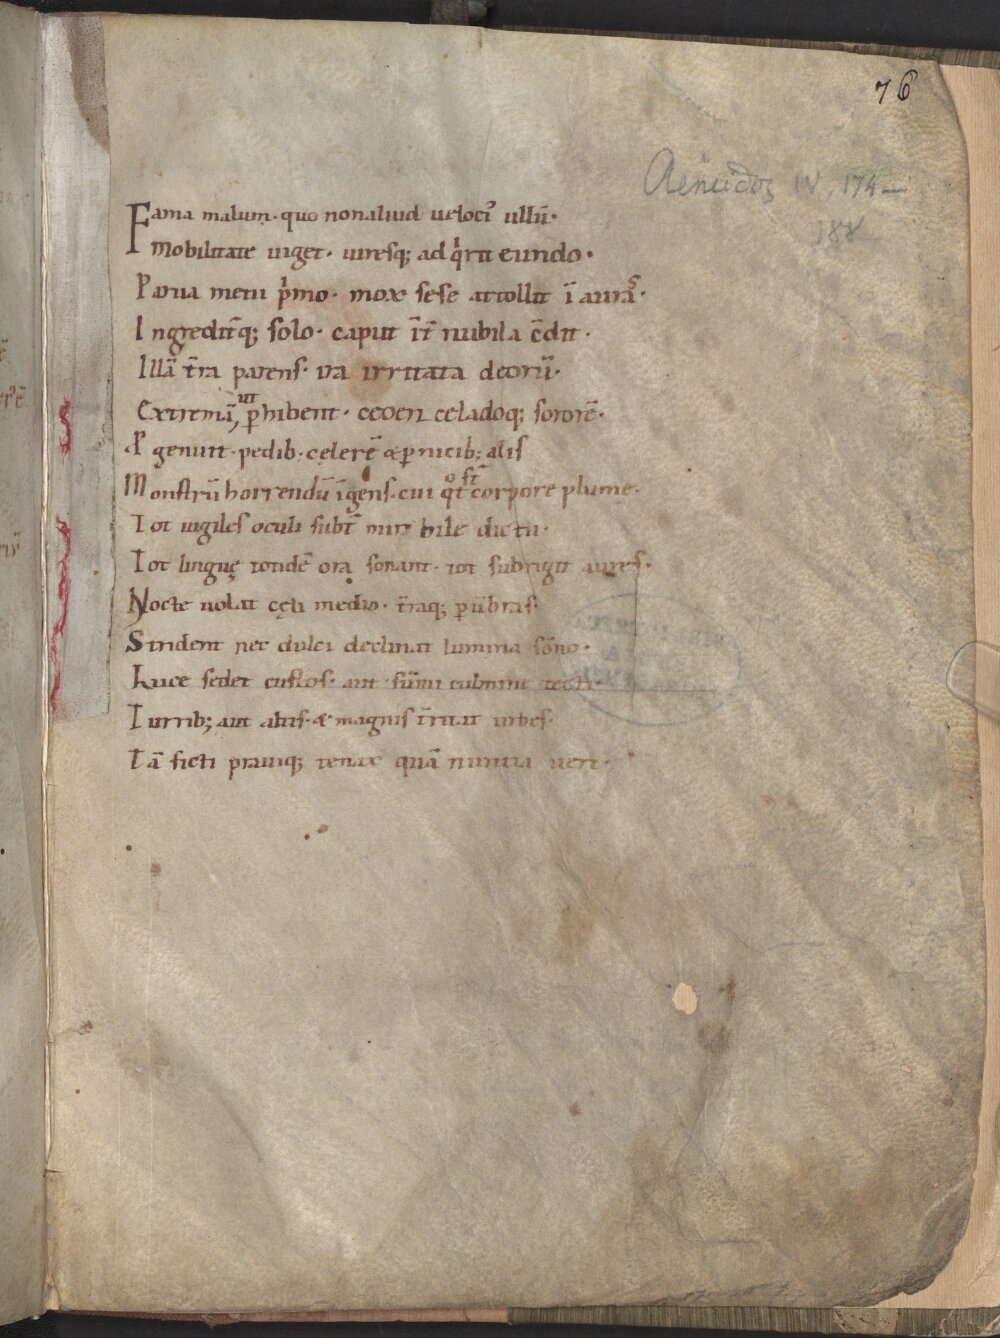 76
Aeneidos IV. 174–
188
Fama malum· quo non aliud veloci᷒ ullū·
Mobilitate viget· viresq; adq̍rit eundo·
Parva metu p̍mo· mox sese attollit ī auras·
Ingredit̄q; solo· caput īt̄ nubila c̄dit·
Illā t̄ra parens· ira irritata deorū·
Extremā, ut phibent· ceoen celadoq; sororē·
& genuit· pedib; celerē & pnicib; alis
Monstrū horrendū īgens· cui q̊t st̄ corpore plume·
Tot vigiles oculi subt̄ mirabile dictu·
Tot linguę totidē ora sonant· tot subrigit aures·
Nocte volat cęli medio· t̄raq; p ūbras·
Strident nec dulci declinat lumina sōno·
Luce sedet custos· aut sūmi culmine tecti·
Turrib; aut altis· & magnis t̄ritat urbes·
Tā ficti pravique; tenax quā nuntia veri·